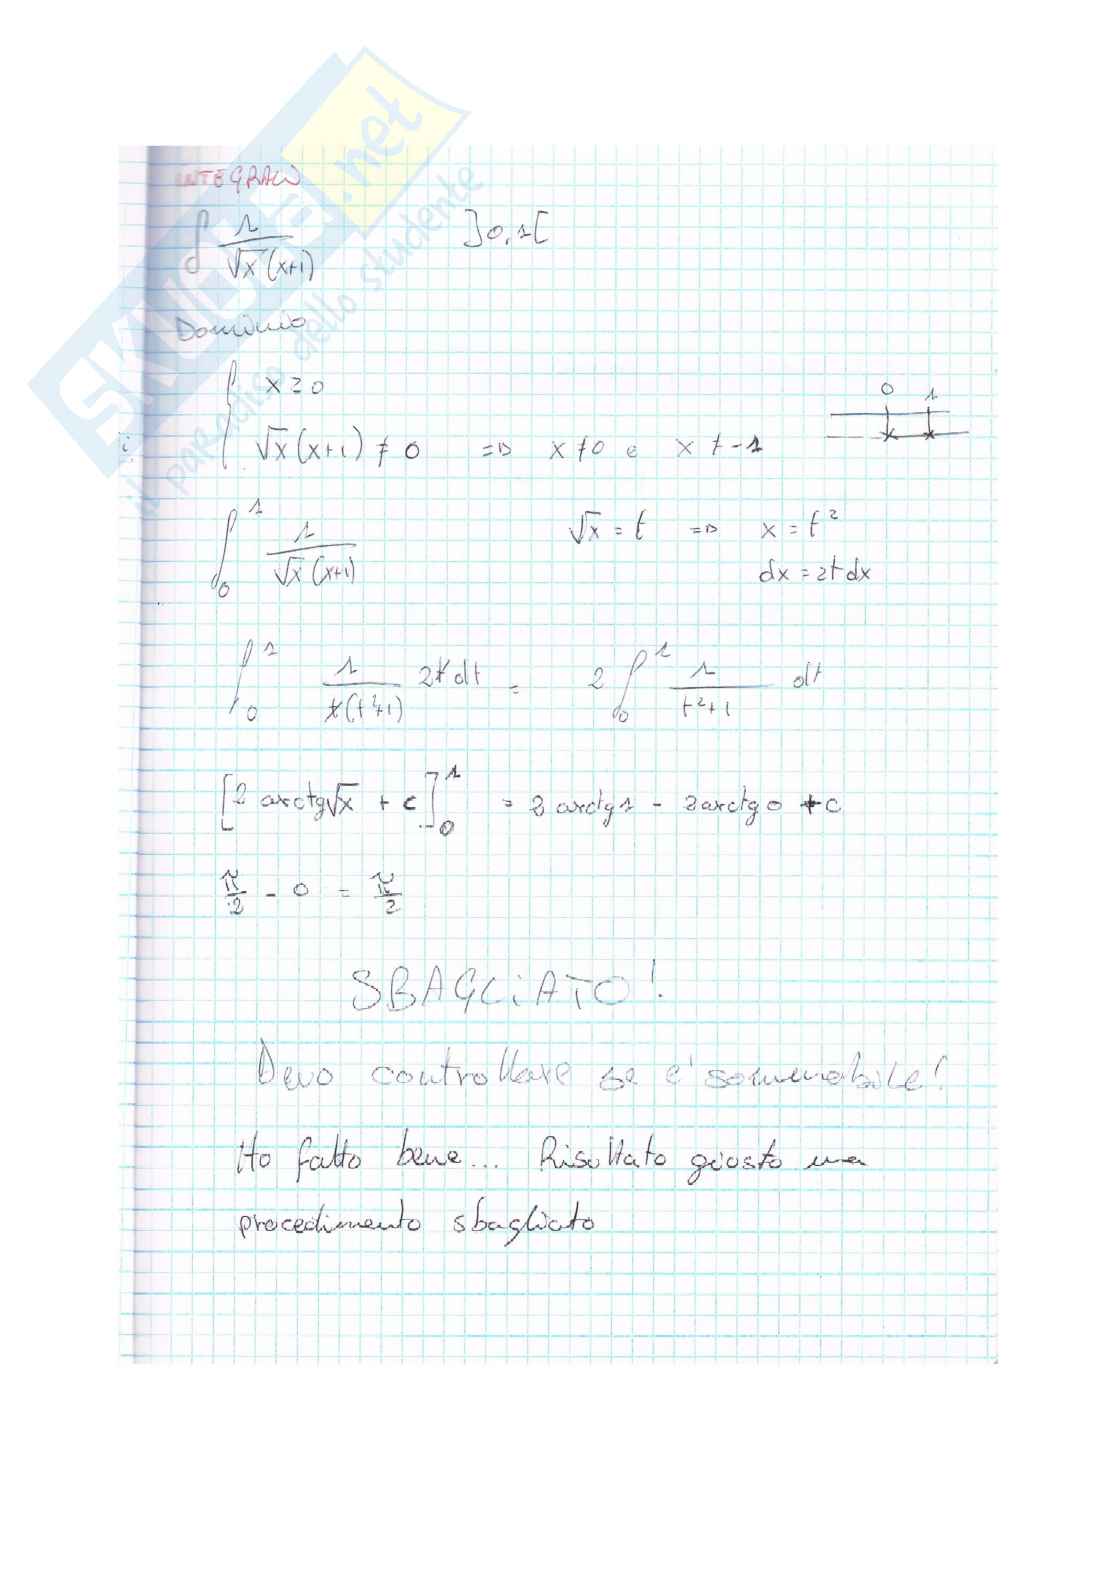 SKUOLA.net
il paradiso dello studente
INTEGRALI
∫ 1/(√x (x+1))    ]0,1[
Dominio
{ x ≥ 0
√x (x+1) ≠ 0 => x ≠ 0 e x ≠ -1
0 1
∫₀¹ 1/(√x (x+1))    √x = t => x = t²
dx = 2t dx
∫₀¹ 1/(t(t²+1)) 2t dt = 2 ∫₀¹ 1/(t²+1) dt
[2 arctg√x + c]₀¹ = 2 arctg1 - 2 arctg0 + c
π/2 - 0 = π/2
SBAGLIATO!
Devo controllare se è sommabile!
Ho fatto bene... Risultato giusto ma
procedimento sbagliato